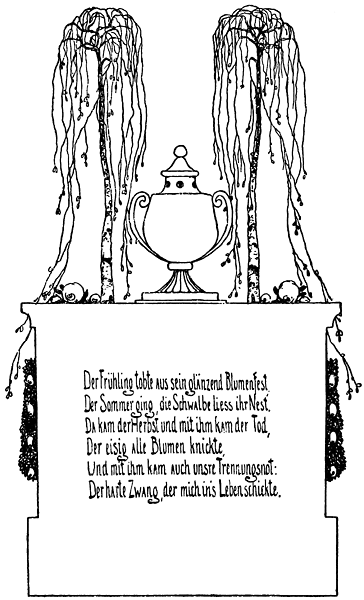 Der Frühling tobte aus sein glänzend Blumenfest,
Der Sommer ging, die Schwalbe liess ihr Nest.
Da kam der Herbst und mit ihm kam der Tod,
Der eisig alle Blumen knickte,
Und mit ihm kam auch unsre Trennungsnot:
Der harte Zwang, der mich in's Leben schickte.